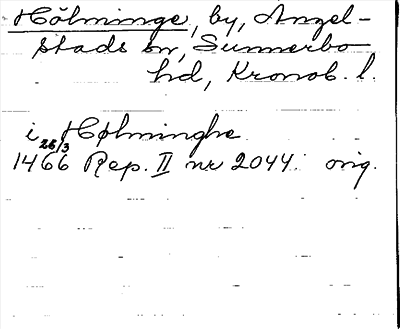 Hölminge, by, Angel-
stads sn, Sunnerbo
hd, Kronob. l.
i Hølminghe
1466 26/3 Rep. II nr 2044. orig.